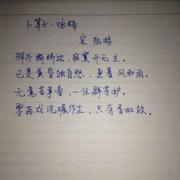 卜算子·咏梅
宋 陆游
驿外断桥边，寂寞开无主。
已是黄昏独自愁，更著风和雨。
无意苦争春，一任群芳妒。
零落成泥碾作尘，只有香如故。